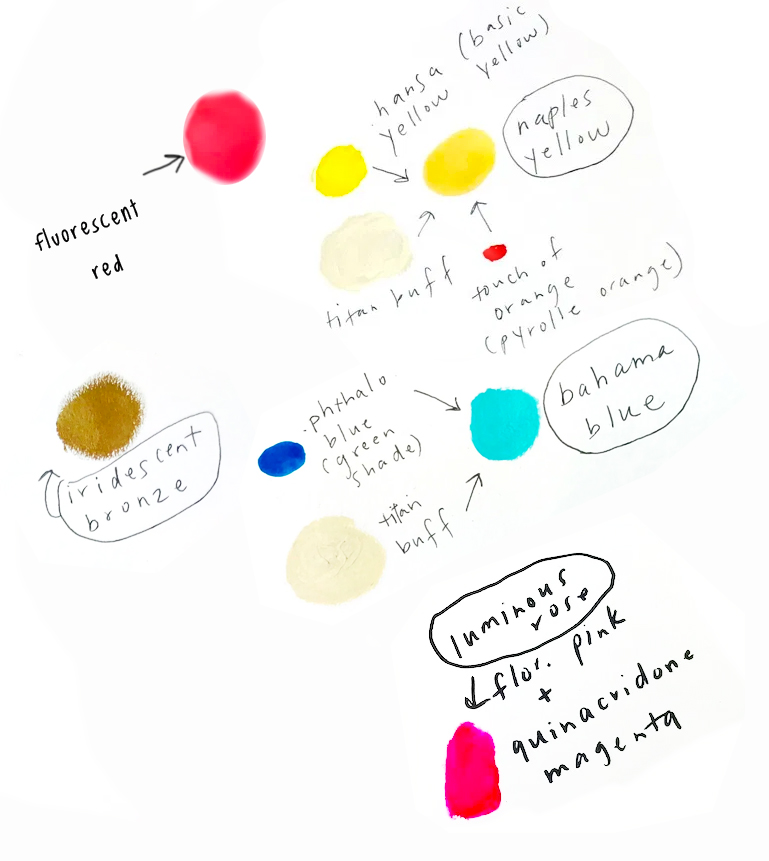 hansa (basic
yellow yellow)
naples
yellow
fluorescent
red
titan buff
touch of
orange
(pyrolle orange)
bahama
blue
phthalo
blue
(green
shade)
iridescent
bronze
titan
buff
luminous
rose
flor. pink
+
quinacridone
magenta